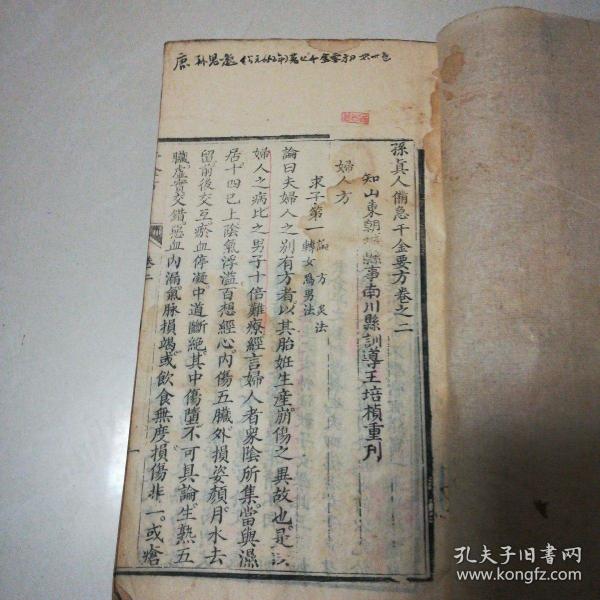 唐 孫思邈
孫真人備急千金要方卷之二
知山東朝城縣事南川縣訓導王培楨重刊
婦人方
求子第一 論 方 灸法 轉女為男法
論曰夫婦人之別有方者以其胎妊生產崩傷之異故也是以
婦人之病比之男子十倍難療經言婦人者衆陰所集當與濕
居十四已上陰氣浮溢百想經心內傷五臟外損姿顏月水去
留前後交互瘀血停凝中道斷絕其中傷墮不可具論生熟五
臟虛實交錯惡血內漏氣脉損竭或飲食無度損傷非一或瘡
卷二
孔夫子旧书网
www.kongfz.com